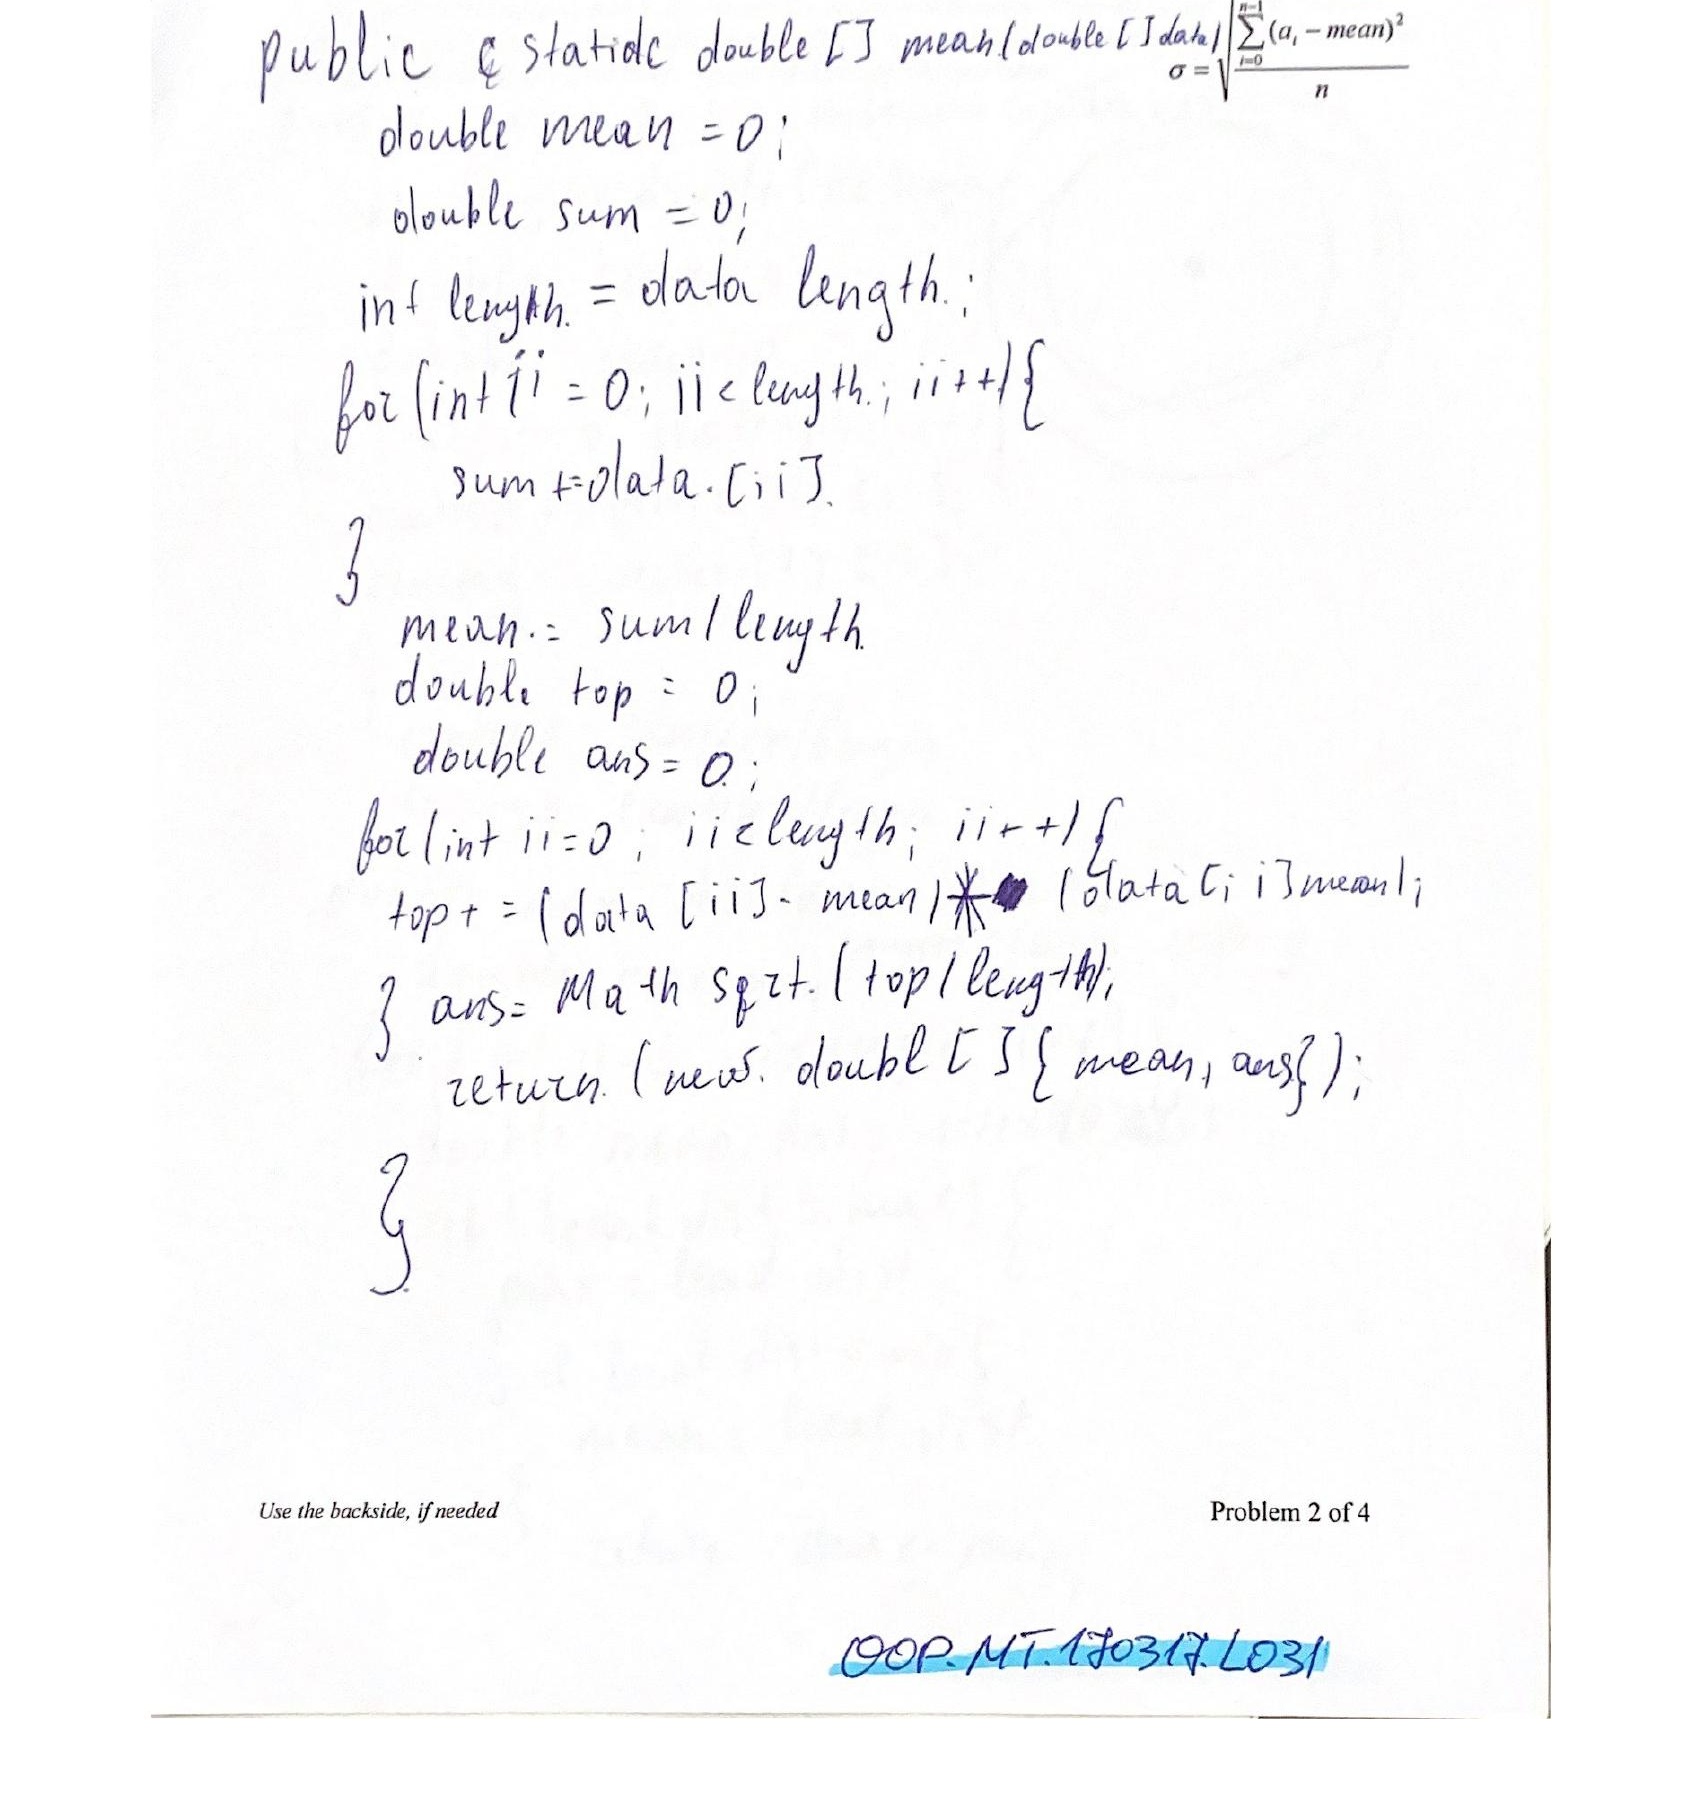 public static double [] mean(double [] data)
σ = √ ∑ (a_i − mean)² / n
n−1
i=0
double mean = 0;
double sum = 0;
int length. = data length.;
for (int ii = 0; ii < length.; ii++) {
sum += data. [ii].
}
mean. = sum / length.
double top = 0;
double ans = 0.;
for (int ii = 0; ii < length; ii++) {
top + = (data [ii] - mean) * (data [ii] mean);
} ans = Math sqrt. (top / length);
return. (new. doubl [] { mean, ans});
}
Use the backside, if needed
Problem 2 of 4
OOP.MT.170317.L031